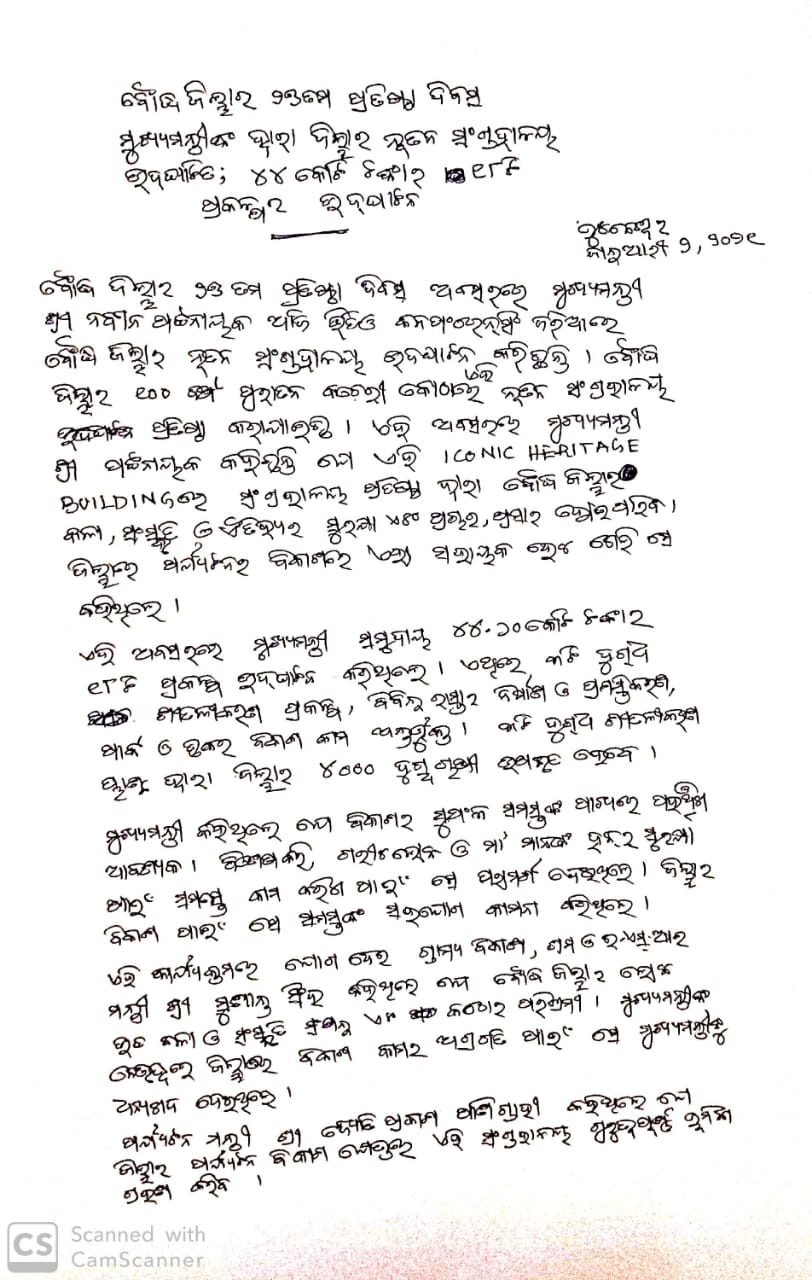 ବୌଦ୍ଧ ଜିଲ୍ଲାର ୨୭ତମ ପ୍ରତିଷ୍ଠା ଦିବସ
ମୁଖ୍ୟମନ୍ତ୍ରୀଙ୍କ ଦ୍ୱାରା ଜିଲ୍ଲାର ନୂତନ ସଂଗ୍ରହାଳୟ
ଉଦଘାଟିତ; ୪୪ କୋଟି ଟଙ୍କାର ୧୮ଟି
ପ୍ରକଳ୍ପର ଉଦ୍‌ଘାଟନ
ଭୁବନେଶ୍ୱର
ଜାନୁଆରୀ ୨, ୨୦୨୧
ବୌଦ୍ଧ ଜିଲ୍ଲାର ୨୭ ତମ ପ୍ରତିଷ୍ଠା ଦିବସ ଅବସରରେ ମୁଖ୍ୟମନ୍ତ୍ରୀ
ଶ୍ରୀ ନବୀନ ପଟ୍ଟନାୟକ ଆଜି ଭିଡିଓ କନଫରେନ୍ସିଂ ଜରିଆରେ
ବୌଦ୍ଧ ଜିଲ୍ଲାର ନୂତନ ସଂଗ୍ରହାଳୟ ଉଦଘାଟନ କରିଛନ୍ତି । ବୌଦ୍ଧ
ଜିଲ୍ଲାର ୧୦୦ ବର୍ଷ ପୁରାତନ କଚେରୀ କୋଠାରେ ଏହି ନୂତନ ସଂଗ୍ରହାଳୟ
ପ୍ରତିଷ୍ଠା କରାଯାଇଛି । ଏହି ଅବସରରେ ମୁଖ୍ୟମନ୍ତ୍ରୀ
ଶ୍ରୀ ପଟ୍ଟନାୟକ କହିଛନ୍ତି ଯେ ଏହି ICONIC HERITAGE
BUILDINGରେ ସଂଗ୍ରହାଳୟ ପ୍ରତିଷ୍ଠା ଦ୍ୱାରା ବୌଦ୍ଧ ଜିଲ୍ଲାର
କଳା, ସଂସ୍କୃତି ଓ ଐତିହ୍ୟର ସୁରକ୍ଷା ଏବଂ ପ୍ରଚାର, ପ୍ରସାର ହୋଇପାରିବ ।
ଜିଲ୍ଲାରେ ପର୍ଯ୍ୟଟନର ବିକାଶରେ ଏହା ସହାୟକ ହେବ ବୋଲି ସେ
କହିଥିଲେ ।
ଏହି ଅବସରରେ ମୁଖ୍ୟମନ୍ତ୍ରୀ ସମୁଦାୟ ୪୪.୬୦ କୋଟି ଟଙ୍କାର
୧୮ଟି ପ୍ରକଳ୍ପ ଉଦ୍‌ଘାଟନ କରିଥିଲେ । ଏଥିରେ କଟି ଦୁଗ୍ଧ
ଶୀତଳୀକରଣ ପ୍ରକଳ୍ପ, ବିଭିନ୍ନ ରାସ୍ତାର ନିର୍ମାଣ ଓ ପ୍ରଶସ୍ତୀକରଣ,
ପାର୍କ ଓ ହ୍ରଦର ବିକାଶ କାମ ଅନ୍ତର୍ଭୁକ୍ତ । କଟି ଦୁଗ୍ଧ ଶୀତଳୀକରଣ
ପ୍ଲାଣ୍ଟ ଦ୍ୱାରା ଜିଲ୍ଲାର ୪୦୦୦ ଦୁଗ୍ଧ ଚାଷୀ ଉପକୃତ ହେବେ ।
ମୁଖ୍ୟମନ୍ତ୍ରୀ କହିଥିଲେ ଯେ ବିକାଶର ସୁଫଳ ସମସ୍ତଙ୍କ ପାଖରେ ପହଞ୍ଚିବା
ଆବଶ୍ୟକ । ବିଶେଷକରି, ଗରୀବ ଲୋକ ଓ ମା' ମାନଙ୍କ ହକର ସୁରକ୍ଷା
ପାଇଁ ସମସ୍ତେ କାମ କରିବା ପାଇଁ ସେ ପରାମର୍ଶ ଦେଇଥିଲେ । ଜିଲ୍ଲାର
ବିକାଶ ପାଇଁ ସେ ସମସ୍ତଙ୍କ ସହଯୋଗ କାମନା କରିଥିଲେ ।
ଏହି କାର୍ଯ୍ୟକ୍ରମରେ ଯୋଗ ଦେଇ ଗ୍ରାମ୍ୟ ବିକାଶ, ଶ୍ରମ ଓ ଇ.ଏସ୍.ଆଇ
ମନ୍ତ୍ରୀ ଶ୍ରୀ ସୁଶାନ୍ତ ସିଂହ କହିଥିଲେ ଯେ ବୌଦ୍ଧ ଜିଲ୍ଲାର ଲୋକ
ଉଚ୍ଚ କଳା ଓ ସଂସ୍କୃତି ସମ୍ପନ୍ନ ଏବଂ କଠୋର ପରିଶ୍ରମୀ । ମୁଖ୍ୟମନ୍ତ୍ରୀଙ୍କ
ନେତୃତ୍ୱରେ ଜିଲ୍ଲାରେ ବିକାଶ କାମର ଅଗ୍ରଗତି ପାଇଁ ସେ ମୁଖ୍ୟମନ୍ତ୍ରୀଙ୍କୁ
ଧନ୍ୟବାଦ ଦେଇଥିଲେ ।
ପର୍ଯ୍ୟଟନ ମନ୍ତ୍ରୀ ଶ୍ରୀ ଜ୍ୟୋତି ପ୍ରକାଶ ପାଣିଗ୍ରାହୀ କହିଥିଲେ ଯେ
ଜିଲ୍ଲାର ପର୍ଯ୍ୟଟନ ବିକାଶ କ୍ଷେତ୍ରରେ ଏହି ସଂଗ୍ରହାଳୟ ଗୁରୁତ୍ୱପୂର୍ଣ୍ଣ ଭୂମିକା
ଗ୍ରହଣ କରିବ ।
CS Scanned with
CamScanner